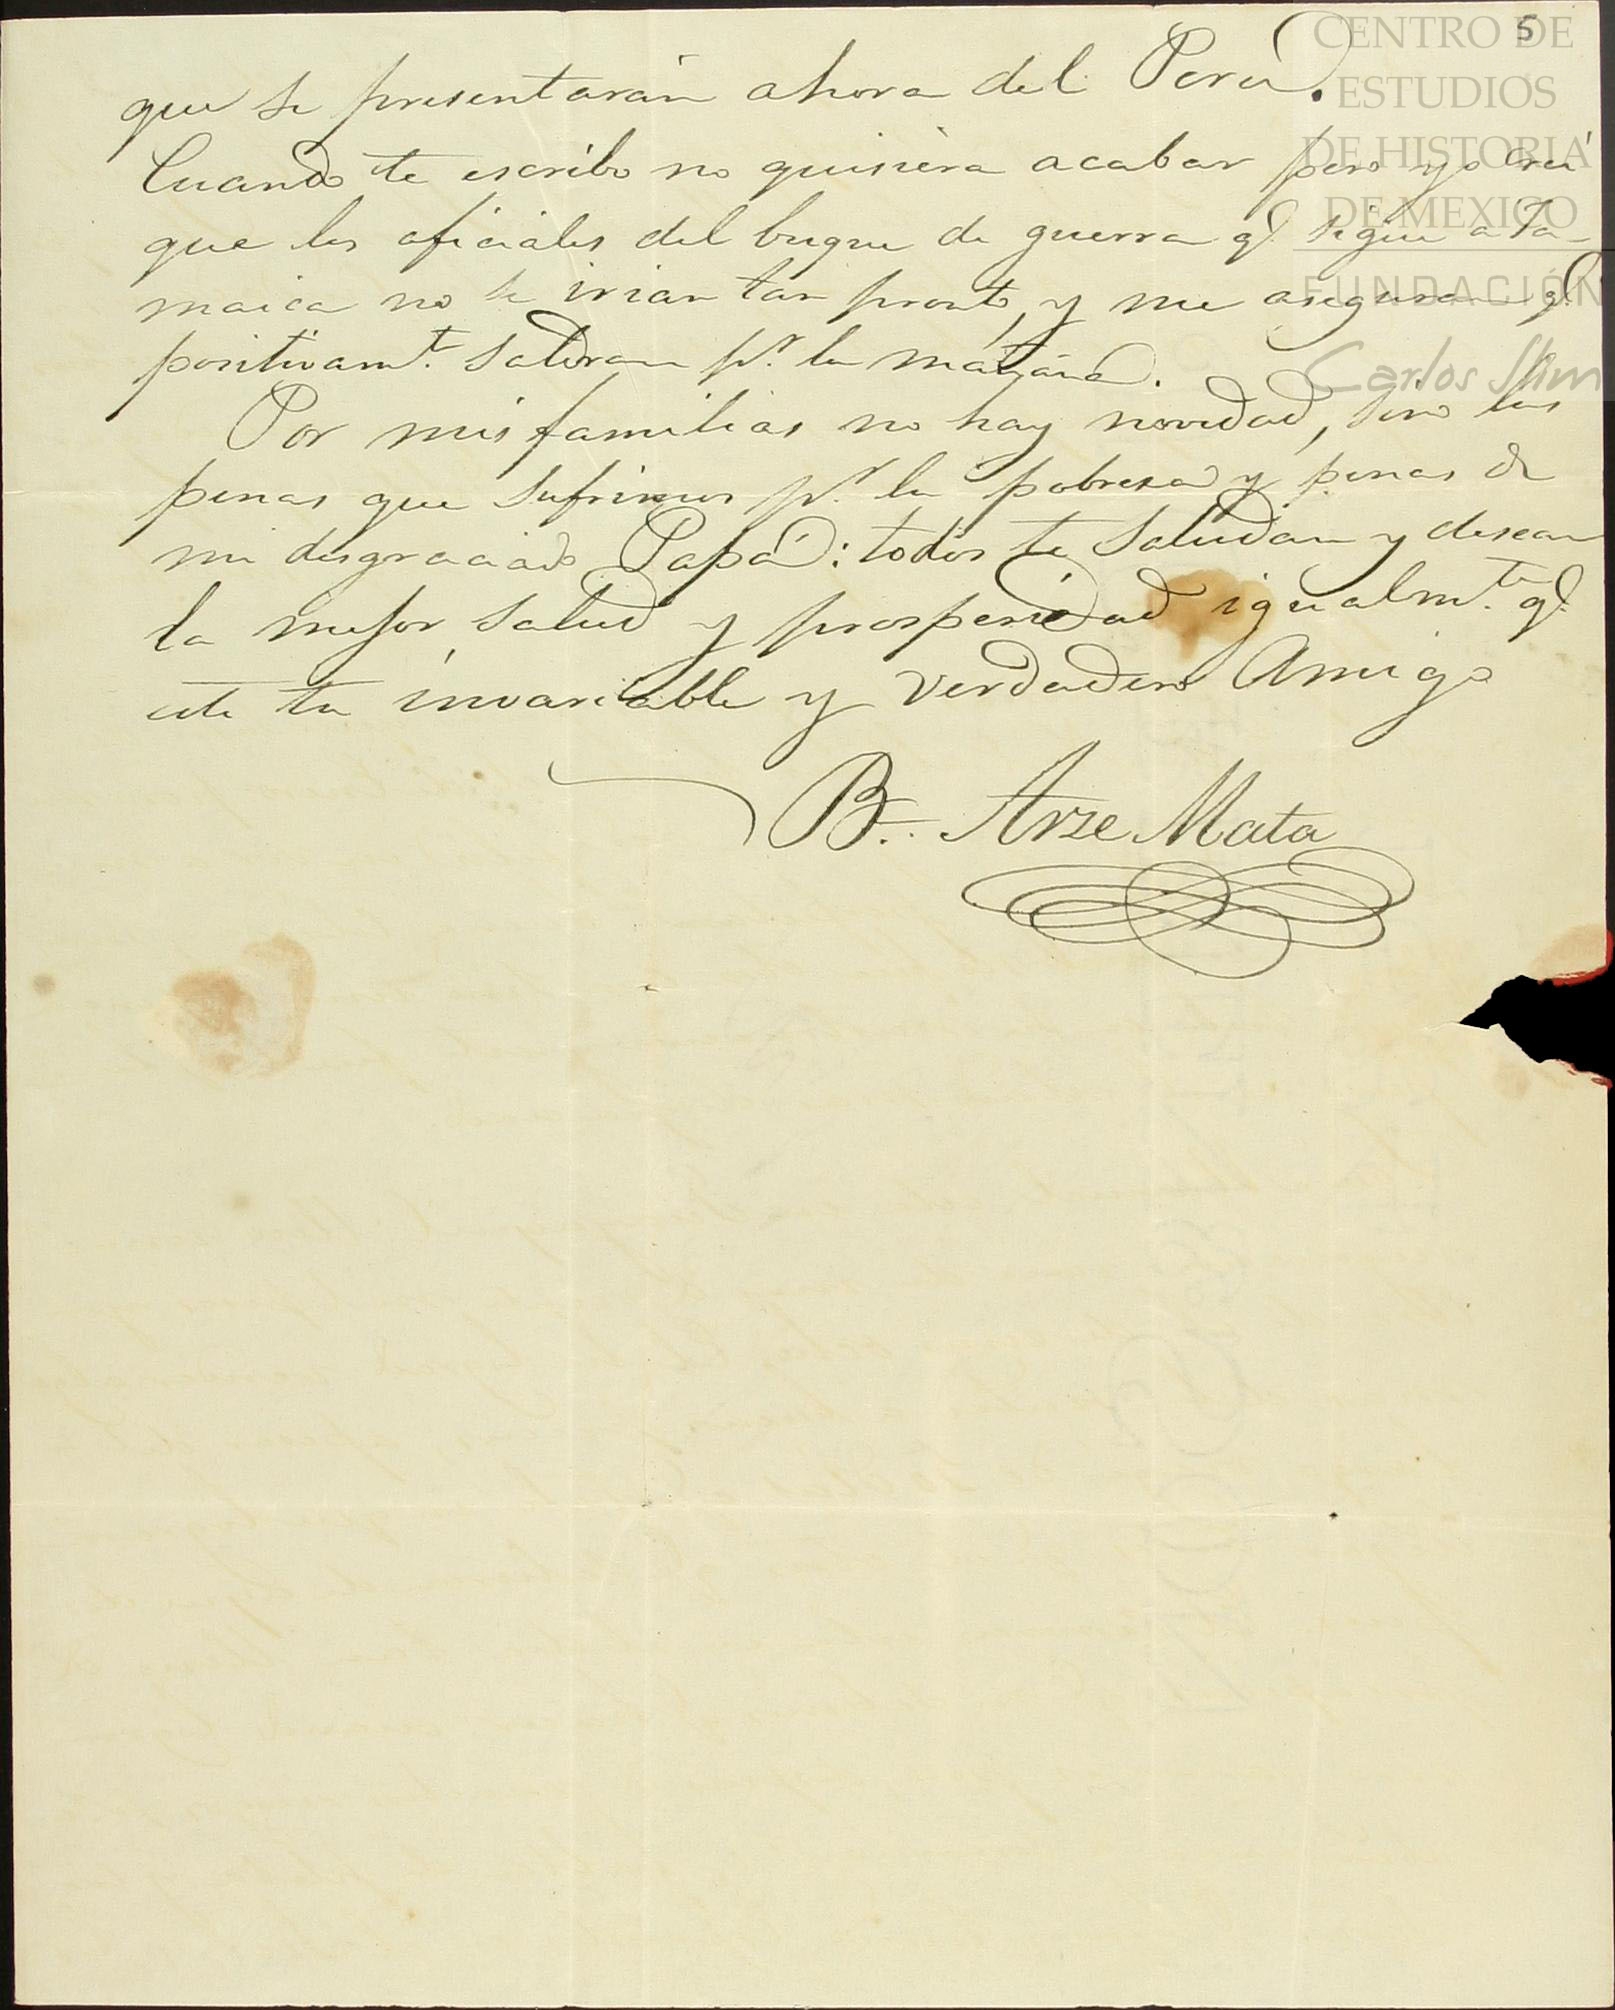 5
CENTRO DE
ESTUDIOS
DE HISTORIA
DE MEXICO
FUNDACIÓN
Carlos Slim
que se presentarán ahora del Perú.
Cuando te escribo no quisiera acabar pero yo creí
que los oficiales del buque de guerra q.e sigue a Ja-
maica no se irian tan pronto, y me aseguran q.e
positivam.te saldran p.r la mañana.
Por mis familias no hay novedad, sino las
penas que sufrimos p.r la pobresa y penas de
mi desgraciado Papá: todos te saludan y desean
la mejor salud y prosperidad igualm.te q.e
este tu invariable y verdadero Amigo
B. Arze Mata